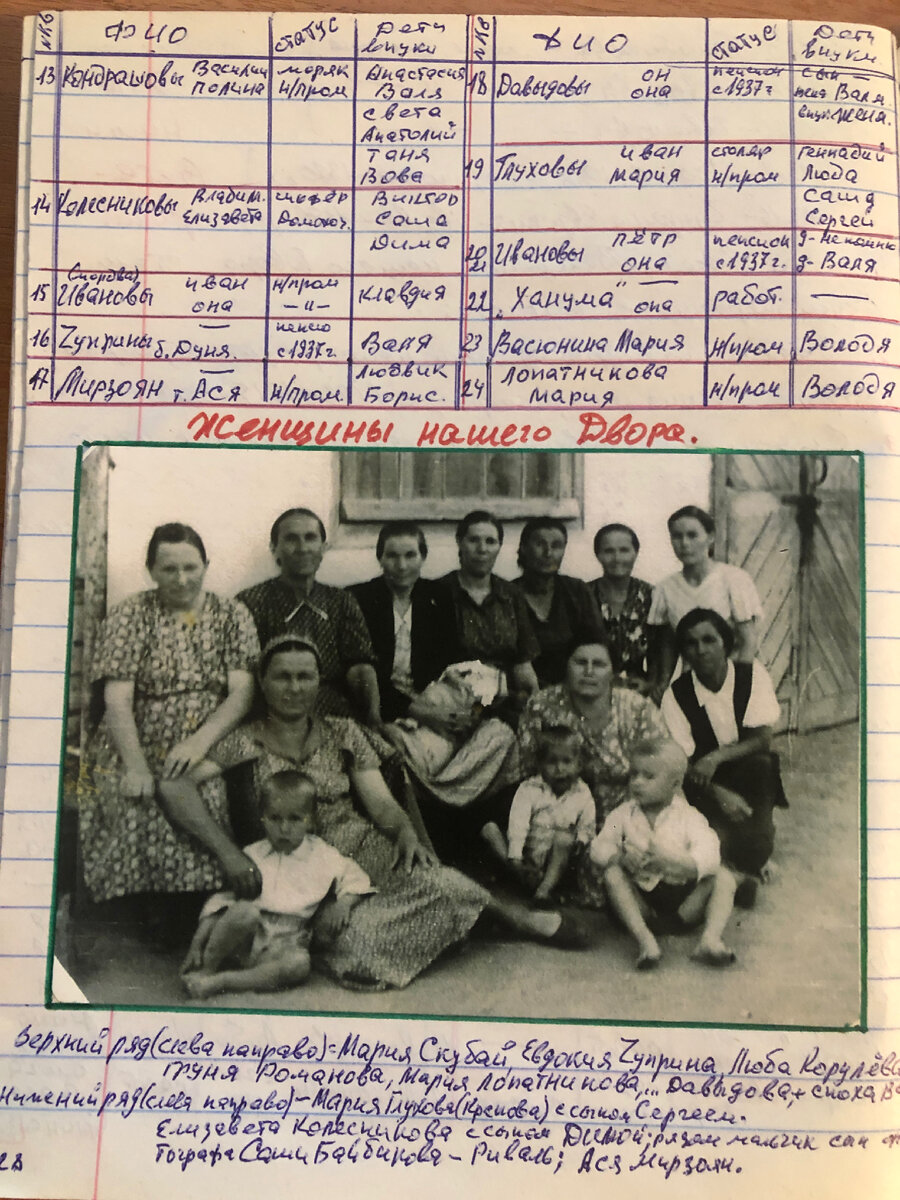 №кв ФИО статус Дети внуки
13 Кондрашовы Василий моряк Анастасия
Полина н/пром Валя
Света
Анатолий
Таня
Вова
14 Колесниковы Владим. шофёр Виктор
Елизавета Домохоз. Саша
Дима
(Скорова)
15 Ивановы иван н/пром Клавдия
она —"—
16 Чуприны — пенсио Валя
б. Дуня. с 1937г.
17 Мирзоян — н/пром. Людвик
т. Ася Борис.
№кв ФИО статус Дети внуки.
18 Давыдовы он пенсион сын —
она с 1937г Валя
Жена.
19 Глуховы иван столяр Геннадий
мария н/пром Люба
Саша
Сергей
20 21 Ивановы пётр пенсион д- не помню
она с 1937г. д- Валя
22 „Ханума" — она работ. —
23 Васюнина Мария н/пром Володя
24 Лопатникова н/пром Володя
мария
Женщины нашего Двора.
Верхний ряд (слева направо)=Мария Скубай, Евдокия Чуприна, Люба Королёва
Груня Романова, Мария Лопатникова,... Давыдова, + сноха
Нижений ряд (слева направо) – Мария Глухова (Крепова) с сыном Сергеем.
Елизавета Колесникова с сыном Димой; рядом мальчик сын фо
тографа Саши Байбикова – Риваль; Ася Мирзоян.
28